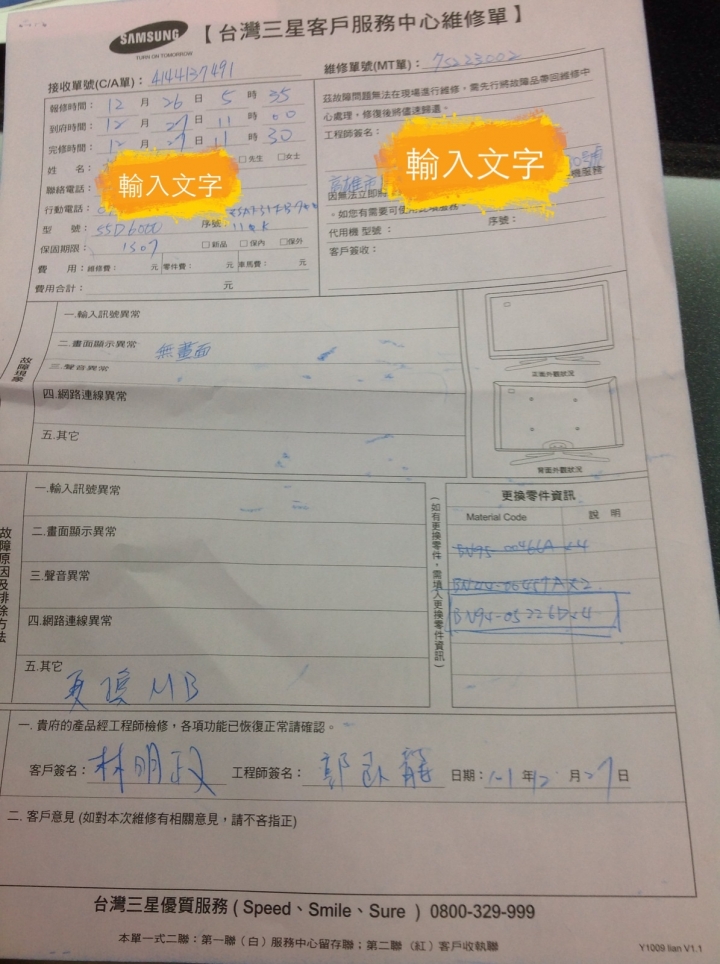 SAMSUNG
TURN ON TOMORROW
【台灣三星客戶服務中心維修單】
接收單號(C/A單)：4144137491
維修單號(MT單)：75223002
報修時間：12 月 26 日 5 時 35
到府時間：12 月 27 日 11 時 00
完修時間：12 月 27 日 11 時 30
姓 名： □先生 □女士
聯絡電話：
輸入文字
行動電話：
型 號：55D6000 序號：
保固期限：1307 □新品 □保內 □保外
費 用：維修費： 元 零件費： 元 車馬費： 元
費用合計： 元
茲故障問題無法在現場進行維修，需先行將故障品帶回維修中
心處理，修復後將儘速歸還。
工程師簽名：
輸入文字
高雄市
因無法立即 機服務
。如您有需要可使用
代用機 型號： 序號：
客戶簽收：
故障現象
一.輸入訊號異常
二.畫面顯示異常 無畫面
三.聲音異常
四.網路連線異常
五.其它
正面外觀狀況
背面外觀狀況
故障原因及排除方法
一.輸入訊號異常
二.畫面顯示異常
三.聲音異常
四.網路連線異常
五.其它
更換MB
(如有更換零件，需填入更換零件資訊)
更換零件資訊
Material Code 說 明
BN95-00466A x4
BN44-00457A x2
BN94-05226D x4
一. 貴府的產品經工程師檢修，各項功能已恢復正常請確認。
客戶簽名：林明政 工程師簽名：郭 日期：101年12月27日
二. 客戶意見 (如對本次維修有相關意見，請不吝指正)
台灣三星優質服務 ( Speed、Smile、Sure ) 0800-329-999
本單一式二聯：第一聯（白）服務中心留存聯；第二聯（紅）客戶收執聯
Y1009 lian V1.1